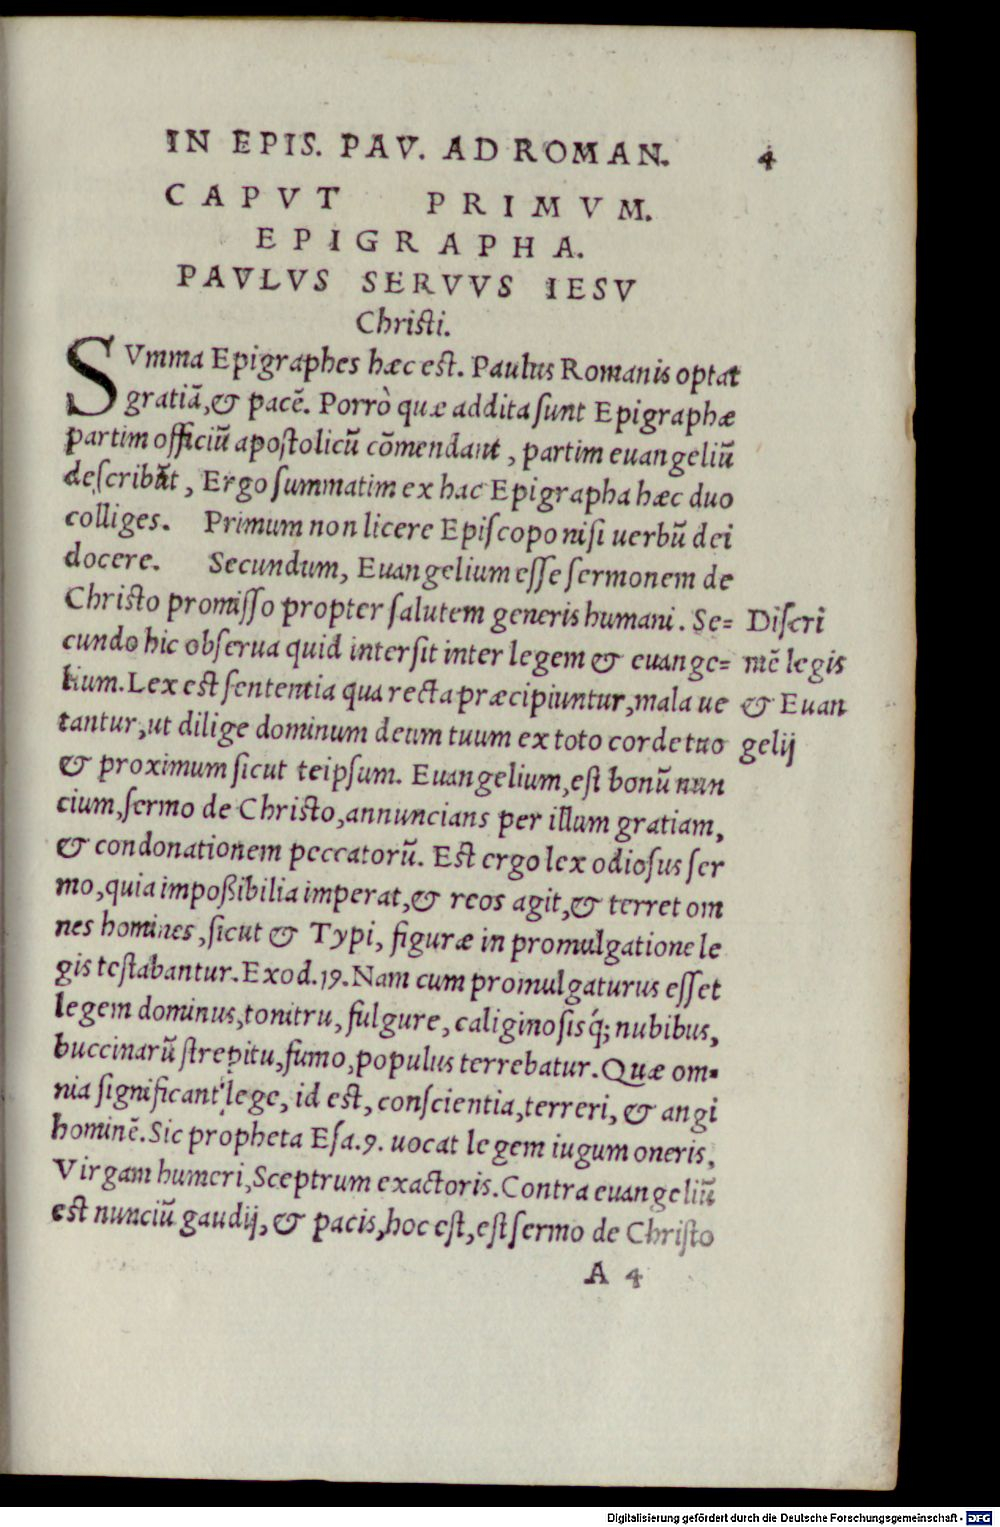 IN EPIS. PAV. AD ROMAN. 4
CAPVT PRIMVM.
EPIGRAPHA.
PAVLVS SERVVS IESV
Christi.
SVmma Epigraphes hæc est. Paulus Romanis optat
gratiā, & pacē. Porrò quæ addita sunt Epigraphæ
partim officiū apostolicū cōmendant, partim euangeliū
describāt, Ergo summatim ex hac Epigrapha hæc duo
colliges. Primum non licere Episcopo nisi uerbū dei
docere. Secundum, Euangelium esse sermonem de
Christo promisso propter salutem generis humani. Se=
cundo hic obserua quid intersit inter legem & euange=
lium. Lex est sententia qua recta præcipiuntur, mala ue
tantur, ut dilige dominum deum tuum ex toto corde tuo
& proximum sicut teipsum. Euangelium, est bonū nun
cium, sermo de Christo, annuncians per illum gratiam,
& condonationem peccatorū. Est ergo lex odiosus ser
mo, quia impoßibilia imperat, & reos agit, & terret om
nes homines, sicut & Typi, figuræ in promulgatione le
gis testabantur. Exod. 19. Nam cum promulgaturus esset
legem dominus, tonitru, fulgure, caliginosisq́; nubibus,
buccinarū strepitu, fumo, populus terrebatur. Quæ om=
nia significant lege, id est, conscientia, terreri, & angi
hominē. Sic propheta Esa. 9. uocat legem iugum oneris,
Virgam humeri, Sceptrum exactoris. Contra euangeliū
est nunciū gaudij, & pacis, hoc est, est sermo de Christo
A 4
Discri
mē legis
& Euan
gelij
Digitalisierung gefördert durch die Deutsche Forschungsgemeinschaft - DFG